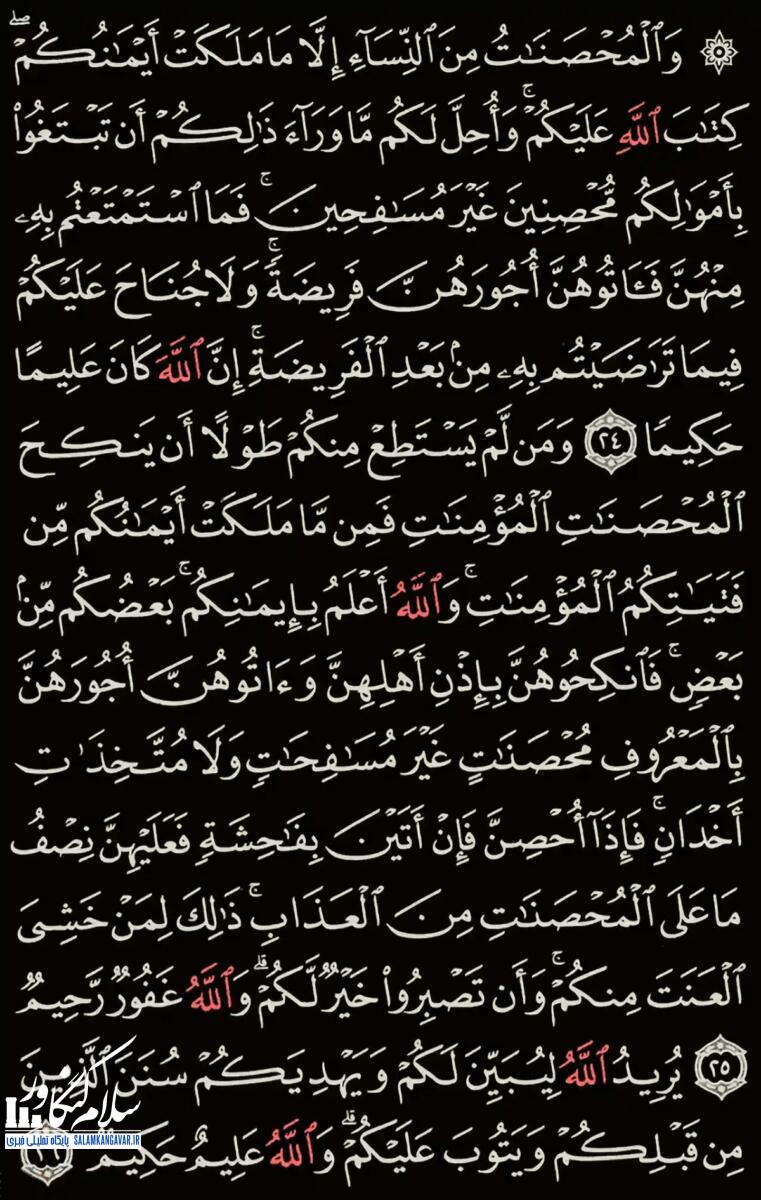 ۞ وَٱلْمُحْصَنَـٰتُ مِنَ ٱلنِّسَآءِ إِلَّا مَا مَلَكَتْ أَيْمَـٰنُكُمْ ۖ
كِتَـٰبَ ٱللَّهِ عَلَيْكُمْ ۚ وَأُحِلَّ لَكُم مَّا وَرَآءَ ذَٰلِكُمْ أَن تَبْتَغُوا۟
بِأَمْوَٰلِكُم مُّحْصِنِينَ غَيْرَ مُسَـٰفِحِينَ ۚ فَمَا ٱسْتَمْتَعْتُم بِهِۦ
مِنْهُنَّ فَـَٔاتُوهُنَّ أُجُورَهُنَّ فَرِيضَةً ۚ وَلَا جُنَاحَ عَلَيْكُمْ
فِيمَا تَرَٰضَيْتُم بِهِۦ مِنۢ بَعْدِ ٱلْفَرِيضَةِ ۚ إِنَّ ٱللَّهَ كَانَ عَلِيمًا
حَكِيمًا ٢٤ وَمَن لَّمْ يَسْتَطِعْ مِنكُمْ طَوْلًا أَن يَنكِحَ
ٱلْمُحْصَنَـٰتِ ٱلْمُؤْمِنَـٰتِ فَمِن مَّا مَلَكَتْ أَيْمَـٰنُكُم مِّن
فَتَيَـٰتِكُمُ ٱلْمُؤْمِنَـٰتِ ۚ وَٱللَّهُ أَعْلَمُ بِإِيمَـٰنِكُم ۚ بَعْضُكُم مِّنۢ
بَعْضٍ ۚ فَٱنكِحُوهُنَّ بِإِذْنِ أَهْلِهِنَّ وَءَاتُوهُنَّ أُجُورَهُنَّ
بِٱلْمَعْرُوفِ مُحْصَنَـٰتٍ غَيْرَ مُسَـٰفِحَـٰتٍ وَلَا مُتَّخِذَٰتِ
أَخْدَانٍ ۚ فَإِذَآ أُحْصِنَّ فَإِنْ أَتَيْنَ بِفَـٰحِشَةٍ فَعَلَيْهِنَّ نِصْفُ
مَا عَلَى ٱلْمُحْصَنَـٰتِ مِنَ ٱلْعَذَابِ ۚ ذَٰلِكَ لِمَنْ خَشِىَ
ٱلْعَنَتَ مِنكُمْ ۚ وَأَن تَصْبِرُوا۟ خَيْرٌ لَّكُمْ ۗ وَٱللَّهُ غَفُورٌ رَّحِيمٌ
٢٥ يُرِيدُ ٱللَّهُ لِيُبَيِّنَ لَكُمْ وَيَهْدِيَكُمْ سُنَنَ ٱلَّذِينَ
مِن قَبْلِكُمْ وَيَتُوبَ عَلَيْكُمْ ۗ وَٱللَّهُ عَلِيمٌ حَكِيمٌ ٢٦
سلام کنگاور
پایگاه تحلیلی خبری SALAMKANGAVAR.IR